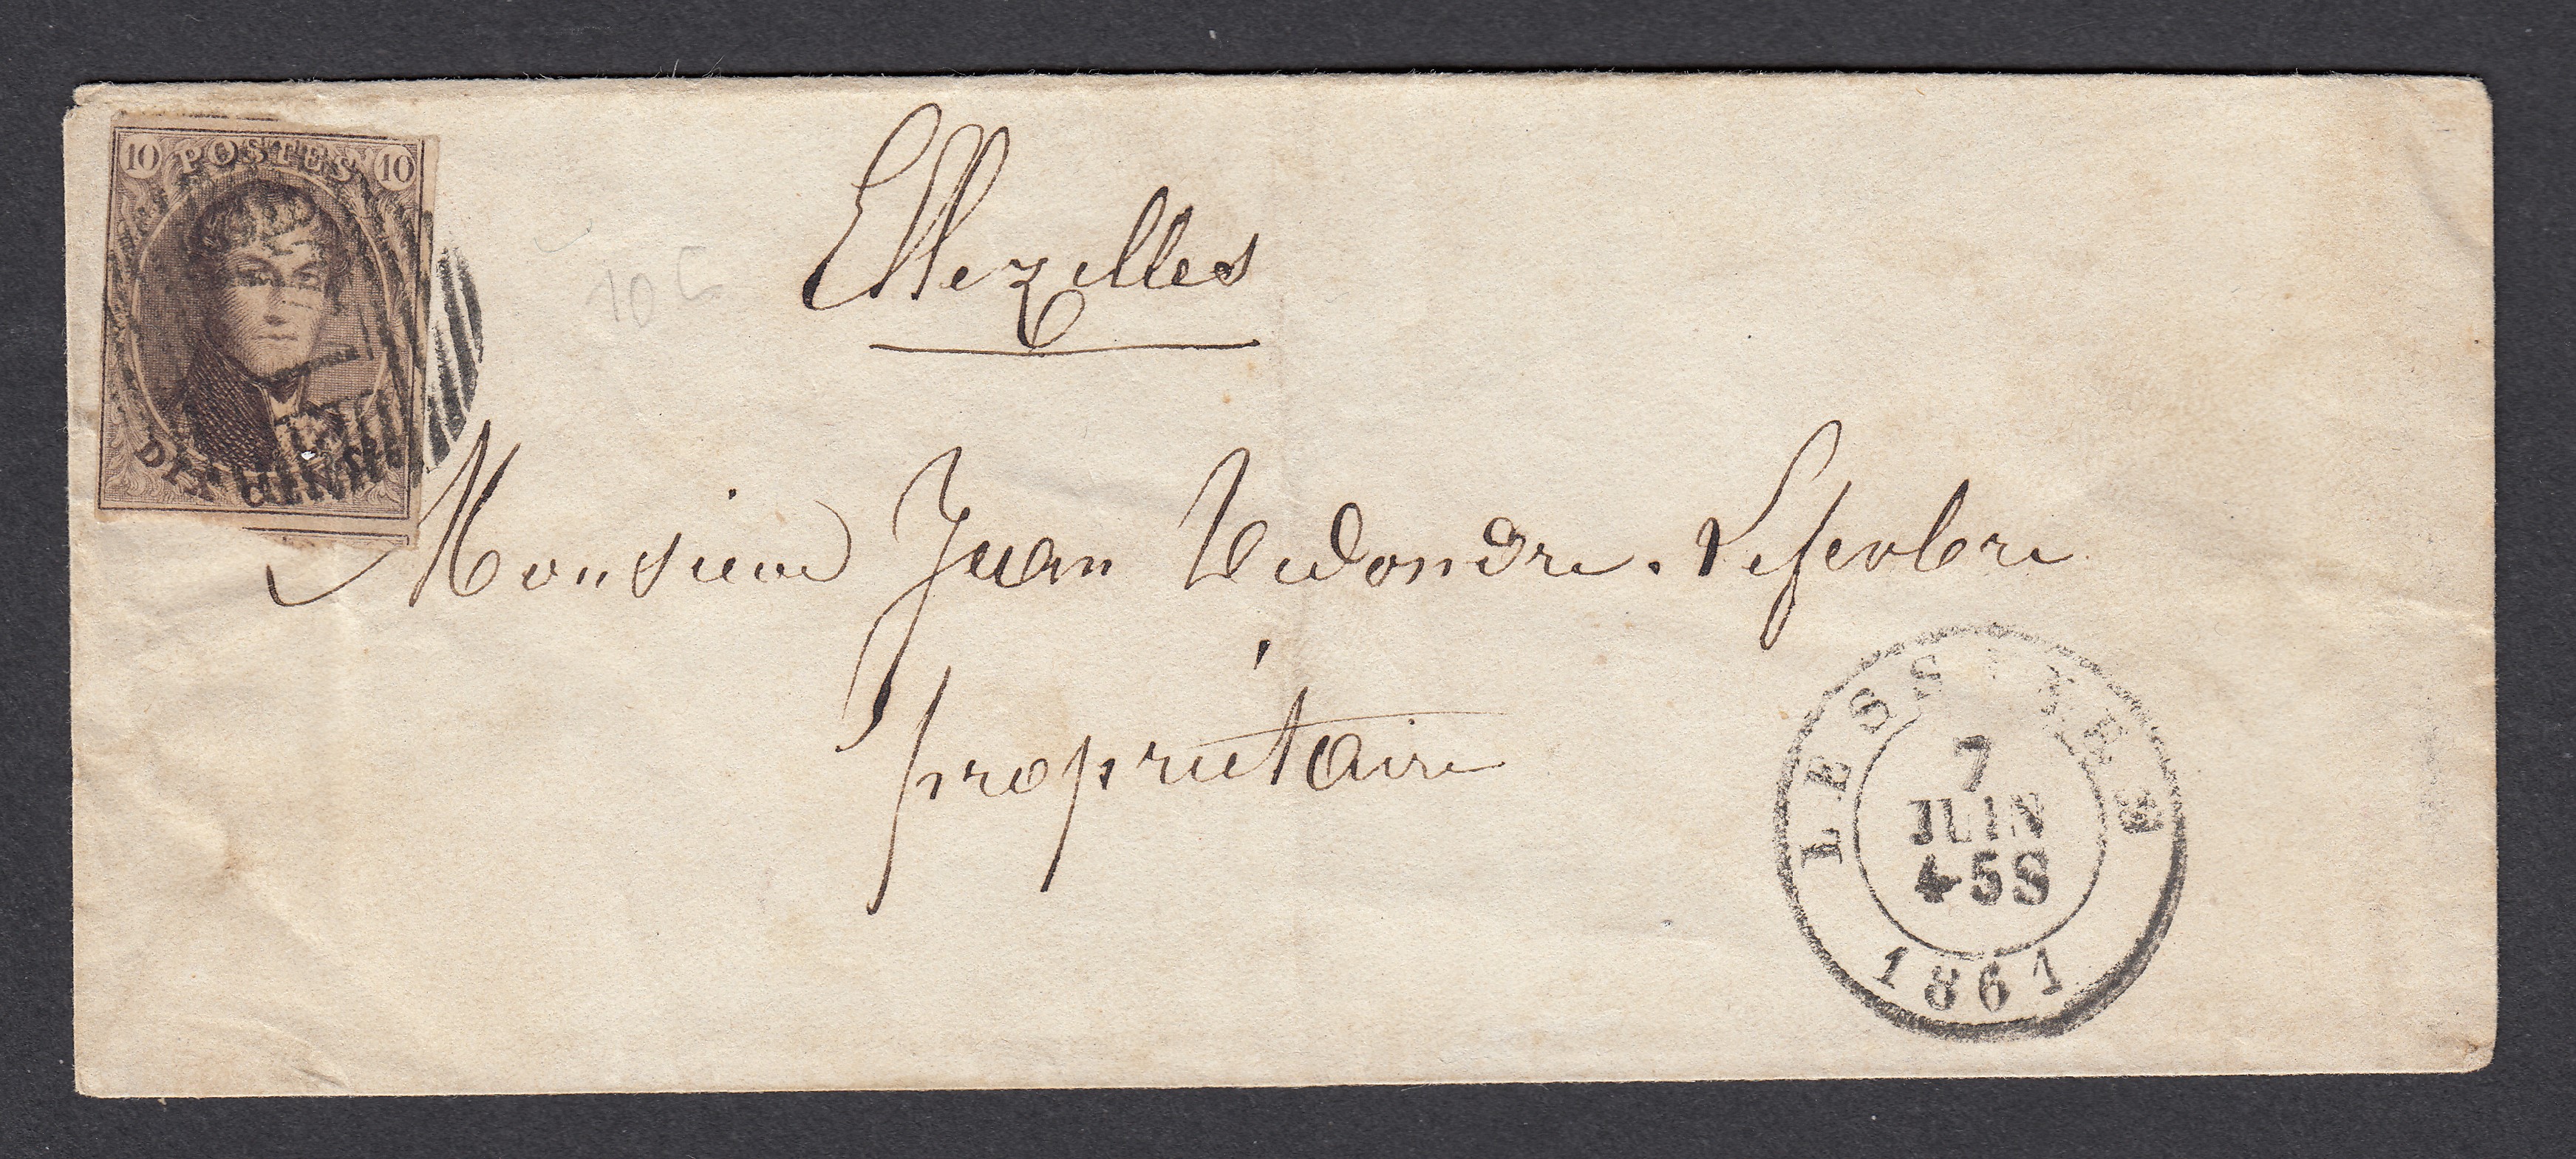 10 POSTES 10
DIX CENTIMES
10 C
Ellezelles
Monsieur Jean Vedondre. Lefevbre
propriétaire
LESSINES
7
JUIN
4-5S
1861